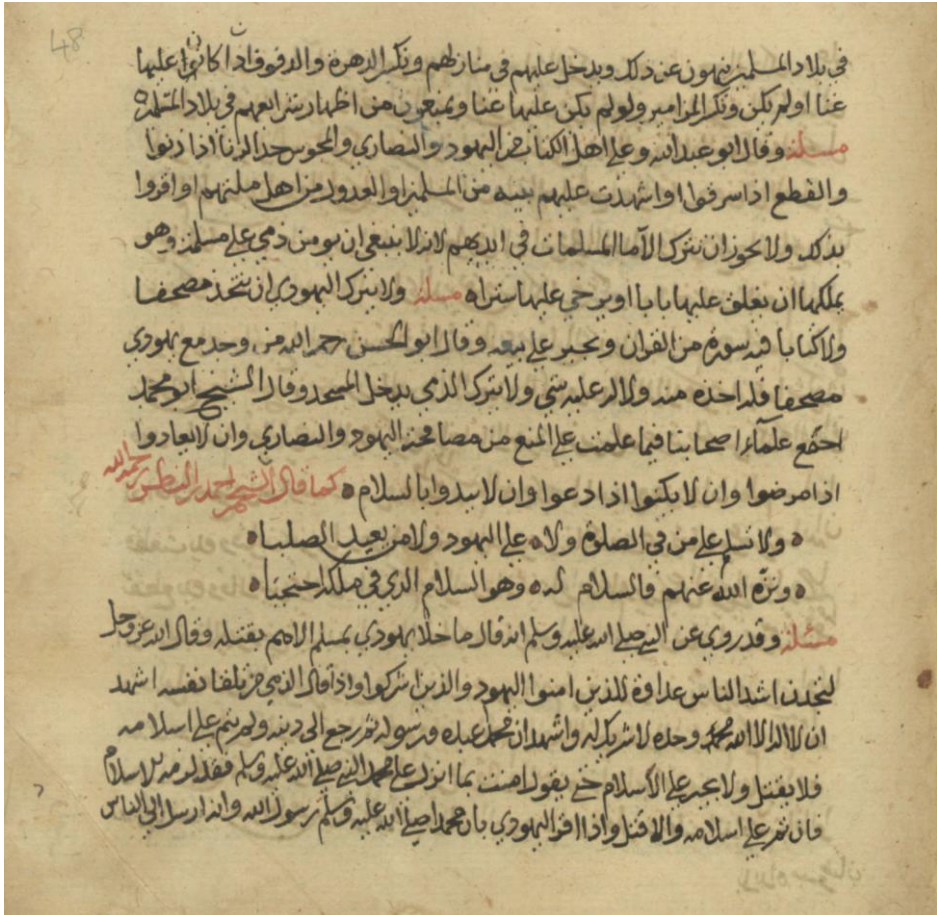 48
في بلاد المسلمين ينهون عن ذلك ويدخل عليهم في منازلهم ونكر الدهرة والدفوف اذا كانوا عليها
غنا اولم يكن ونكر المزامير ولو لم يكن عليها غنا ويمنعون من اظهار شرائعهم في بلاد
مسئلة وقال ابو عبد الله وعلى اهل الكتاب من اليهود والنصارى والمجوس حد الزنا اذا زنوا
والقطع اذا سرقوا او اشهدت عليهم بينه من المسلمين او العدول من اهل ملتهم او اقروا
بذلك ولا يجوز ان نترك الآما المسلمات في ايديهم لانه لا ينبغي ان يومن ذمي على مسلمة وهو
يملكها ان يغلق عليها بابا او يرخي عليها سترا ه مسئلة ولا يترك اليهودي ان يتخذ مصحفا
ولا كتابا فيه سورة من القران ويجبر على بيعه وقال ابو الحسن رحمه الله من وجد مع يهودي
مصحفا فله اخذه منه ولا له عليه شي ولا يترك الذمي يدخل المسجد وقال الشيخ ابو محمد
اجتمع علمآء اصحابنا فيما علمت على المنع من مصافحة اليهود والنصارى وان لا يعادوا
اذا مرضوا وان لا يكنوا اذا دعوا وان لا يبدوا بالسلام ه كما قال الشيخ احمد بن النظر رحمه الله
ه ولا تسلم على من في الصلوة ولا ه على اليهود ولا من يعبد الصلبا ه
ه ونزه الله عنهم فالسلام له ه وهو السلام الذي في ملكه احتجبا ه
مسئلة وقد روي عن النبي صلى الله عليه وسلم انه قال ما خلا يهودي بمسلم الا هم بقتله وقال الله عز وجل
لتجدن اشد الناس عداوة للذين امنوا اليهود والذين اشركوا واذا قال الذمي من تلقا نفسه اشهد
ان لا اله الا الله وحده لا شريك له واشهد ان محمد عبده ورسوله ثم رجع الى دينه ولم يتم على اسلامه
فلا يقتل ولا يجبر على الاسلام حتى يقول امنت بما انزل على محمد النبي صلى الله عليه وسلم فقد لزمه الاسلام
فان تم على اسلامه والا قتل واذا اقر اليهودي بان محمدا صلى الله عليه وسلم رسول الله وانه ارسل الى الناس